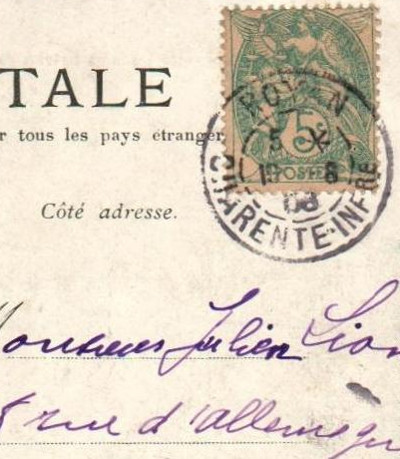 TALE
r tous les pays étranger
Côté adresse.
5
POSTES
ROYAN
5
08
CHARENTE-INFRE
Monsieur Julien Lion
rue d'allemagn